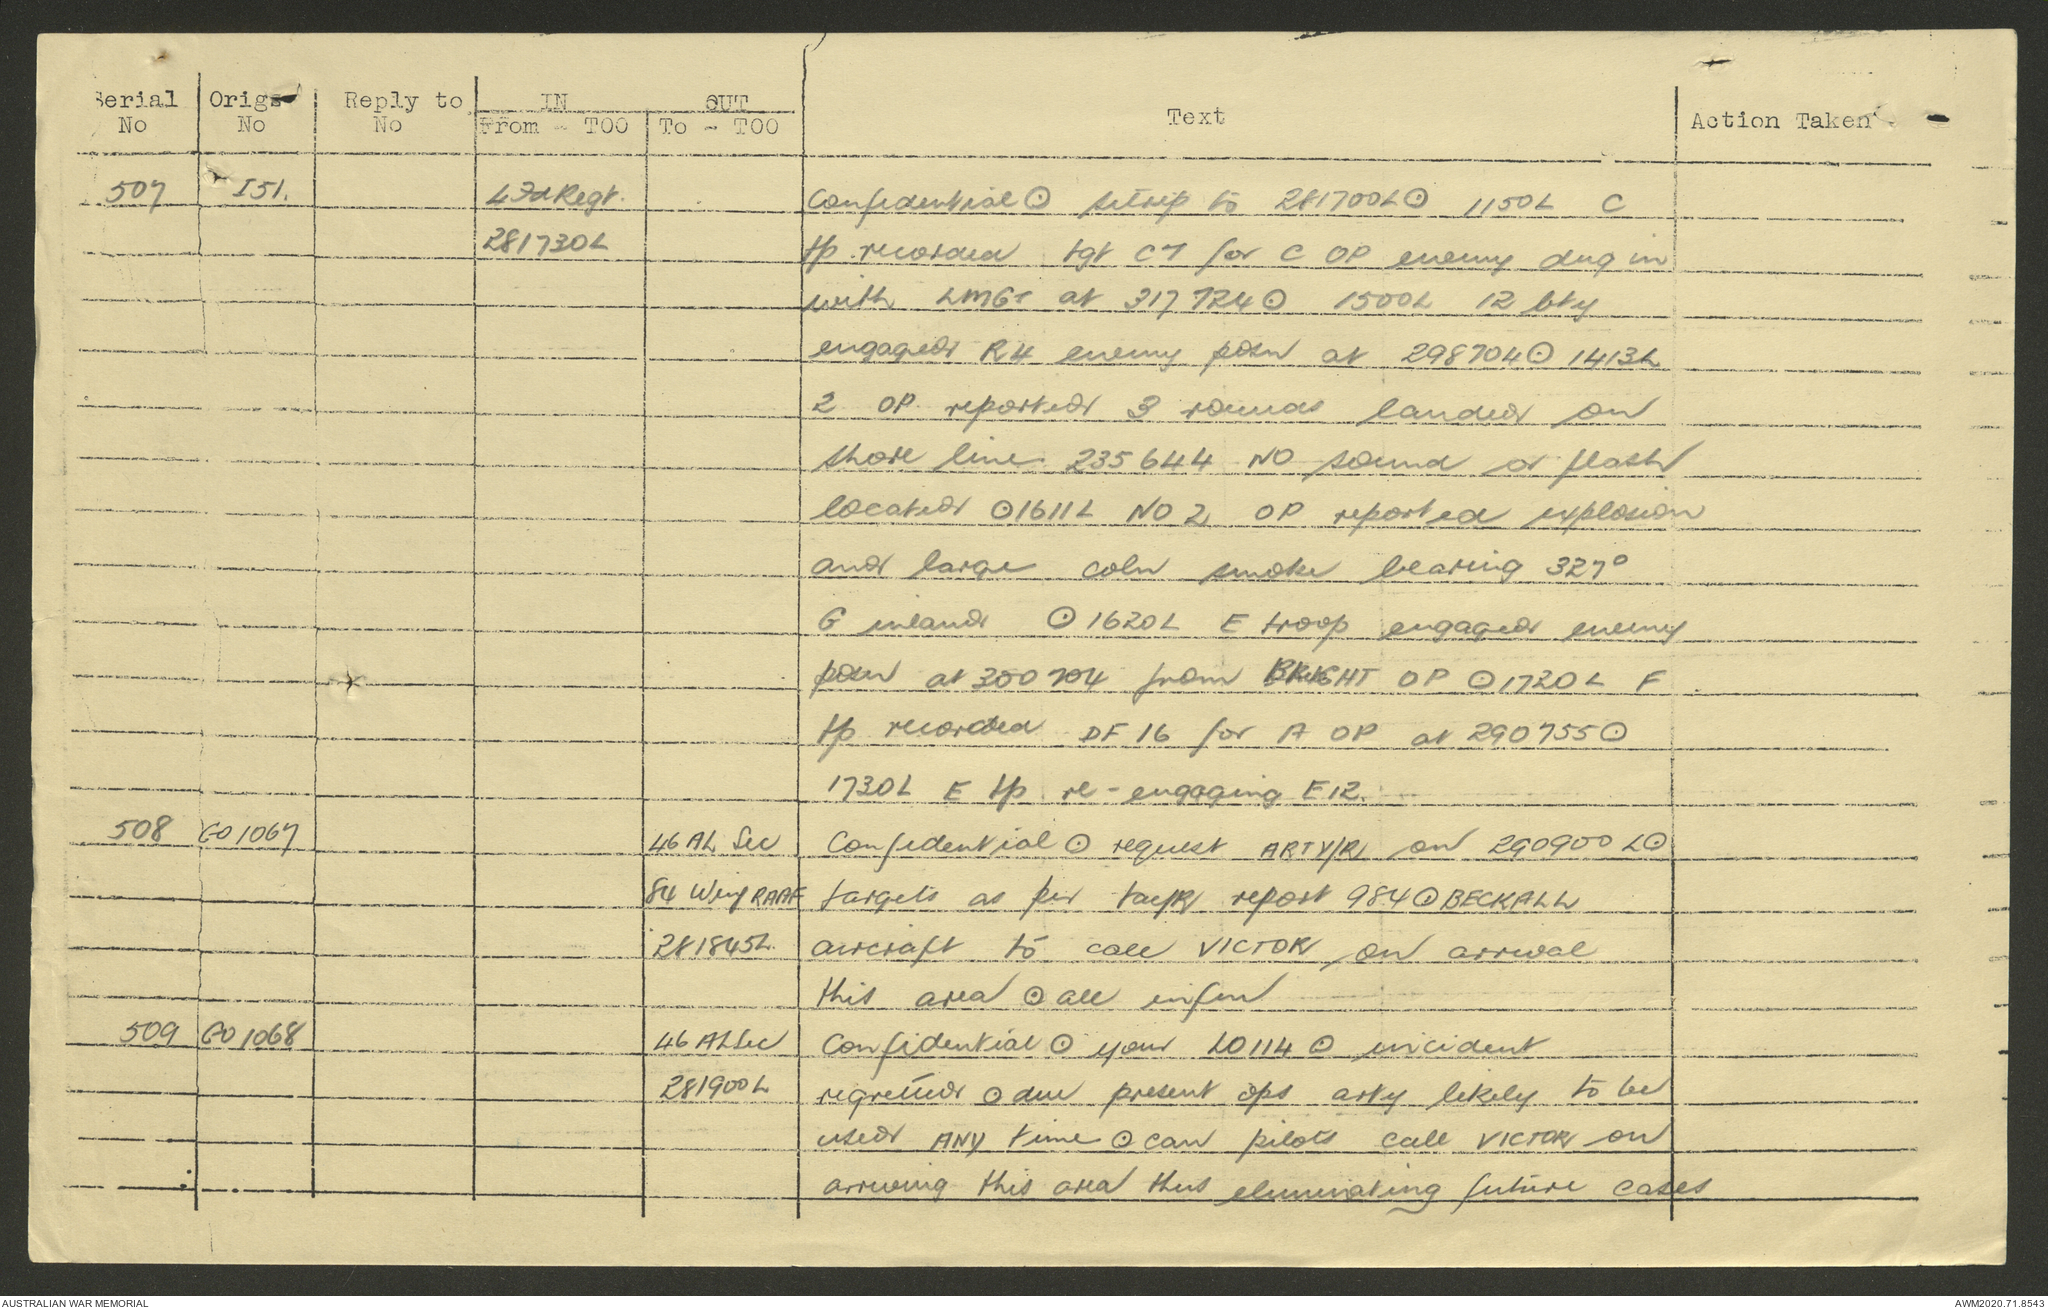 Serial No | Origs No | Reply to No | IN From - TOO | OUT To - TOO | Text | Action Taken
507 | I51. | | 4 Fd Regt. | | Confidential ⊙ sitrep to 281700L ⊙ 1150L C
281730L | tp recorded tgt C7 for C OP enemy dug in
with LMGs at 317724 ⊙ 1500L 12 bty
engaged R4 enemy posn at 298704 ⊙ 1413L
2 OP. reported 3 rounds landed on
shore line 235644 NO sound or flash
located ⊙ 1611L NO 2 OP reported explosion
and large coln smoke bearing 327°
G inland ⊙ 1620L E troop engaged enemy
posn at 300704 from BRIGHT OP ⊙ 1720L F
tp recorded DF 16 for A OP at 290755 ⊙
1730L E tp re-engaging E12.
508 | GO1067 | | | 46 AL Sec | Confidential ⊙ request ARTY/R on 290900L ⊙
84 Wing RAAF | targets as per tac/R report 984 ⊙ BECKALL
281845L. | aircraft to call VICTOR on arrival
this area ⊙ all infm
509 | GO1068 | | | 46 AL Sec | Confidential ⊙ your LO114 ⊙ incident
281900L | regretted ⊙ due present ops arty likely to be
used ANY time ⊙ can pilots call VICTOR on
arriving this area thus eliminating future cases
AUSTRALIAN WAR MEMORIAL
AWM2020.71.8543